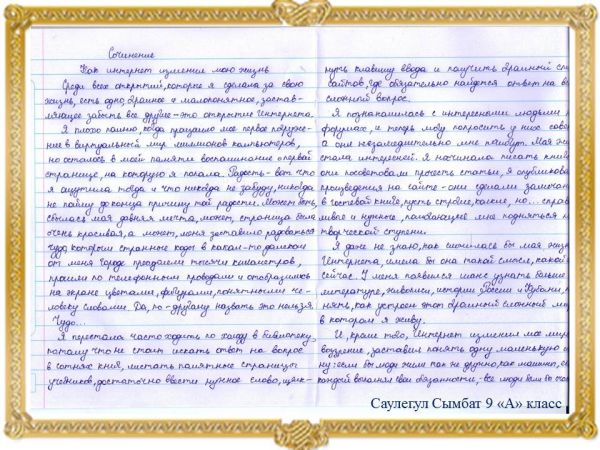 Сочинение
Как интернет изменил мою жизнь
Среди всех открытий, которые я сделала за свою
жизнь, есть одно, странное и малопонятное, застав-
ляющее забыть все другие - это открытие Интернета.
Я плохо помню, когда прошло мое первое погруже-
ние в виртуальный мир миллионов компьютеров,
но осталось в моей памяти воспоминание о первой
странице, на которую я попала. Радость - вот что
я ощутила тогда и что никогда не забуду, никогда
не пойму до конца причину той радости. Может быть,
сбылась моя давняя мечта, может, страница была
очень красивая, а может, меня заставило радоваться
чудо, которым странные коды в каком-то далеком
от меня городе преодолели тысячи километров,
прошли по телефонным проводам и отобразились
на экране цветами, фигурами, понятными че-
ловеку словами. Да, по-другому назвать это нельзя.
Чудо...
Я перестала часто ходить по холоду в библиотеку,
потому что не стоит искать ответ на вопрос
в сотнях книг, листать памятные страницы
учебников, достаточно ввести нужное слово, щелк-
нуть клавишу ввода и получить странный
байтов, где обязательно найдется ответ на
сложный вопрос.
Я познакомилась с интересными людьми
форумах, и теперь могу попросить у них
а они незамедлительно мне помогут. Моя
стала интересней. Я начинала писать
они посоветовали прочесть статьи, я
произведения на сайте - они сделали
в честевой книге, пусть строгие, колкие, но...
ливое и нужные, помогающие мне подняться
творческой ступени.
Я даже не знаю, как сложилась бы моя
Интернета, имела бы она такой смысл, какой
сейчас. У меня появился шанс узнать больше
литературе, живописи, истории России и Кубани,
нять, как устроен этот странный сложный
в котором я живу.
И, кроме того, Интернет изменил мое
воззрение, заставил понять одну маленькую
ну: если бы люди жили так же дружно, как машины,
каждой выполняя свои обязанности, - все люди были бы
Саулегул Сымбат 9 «А» класс